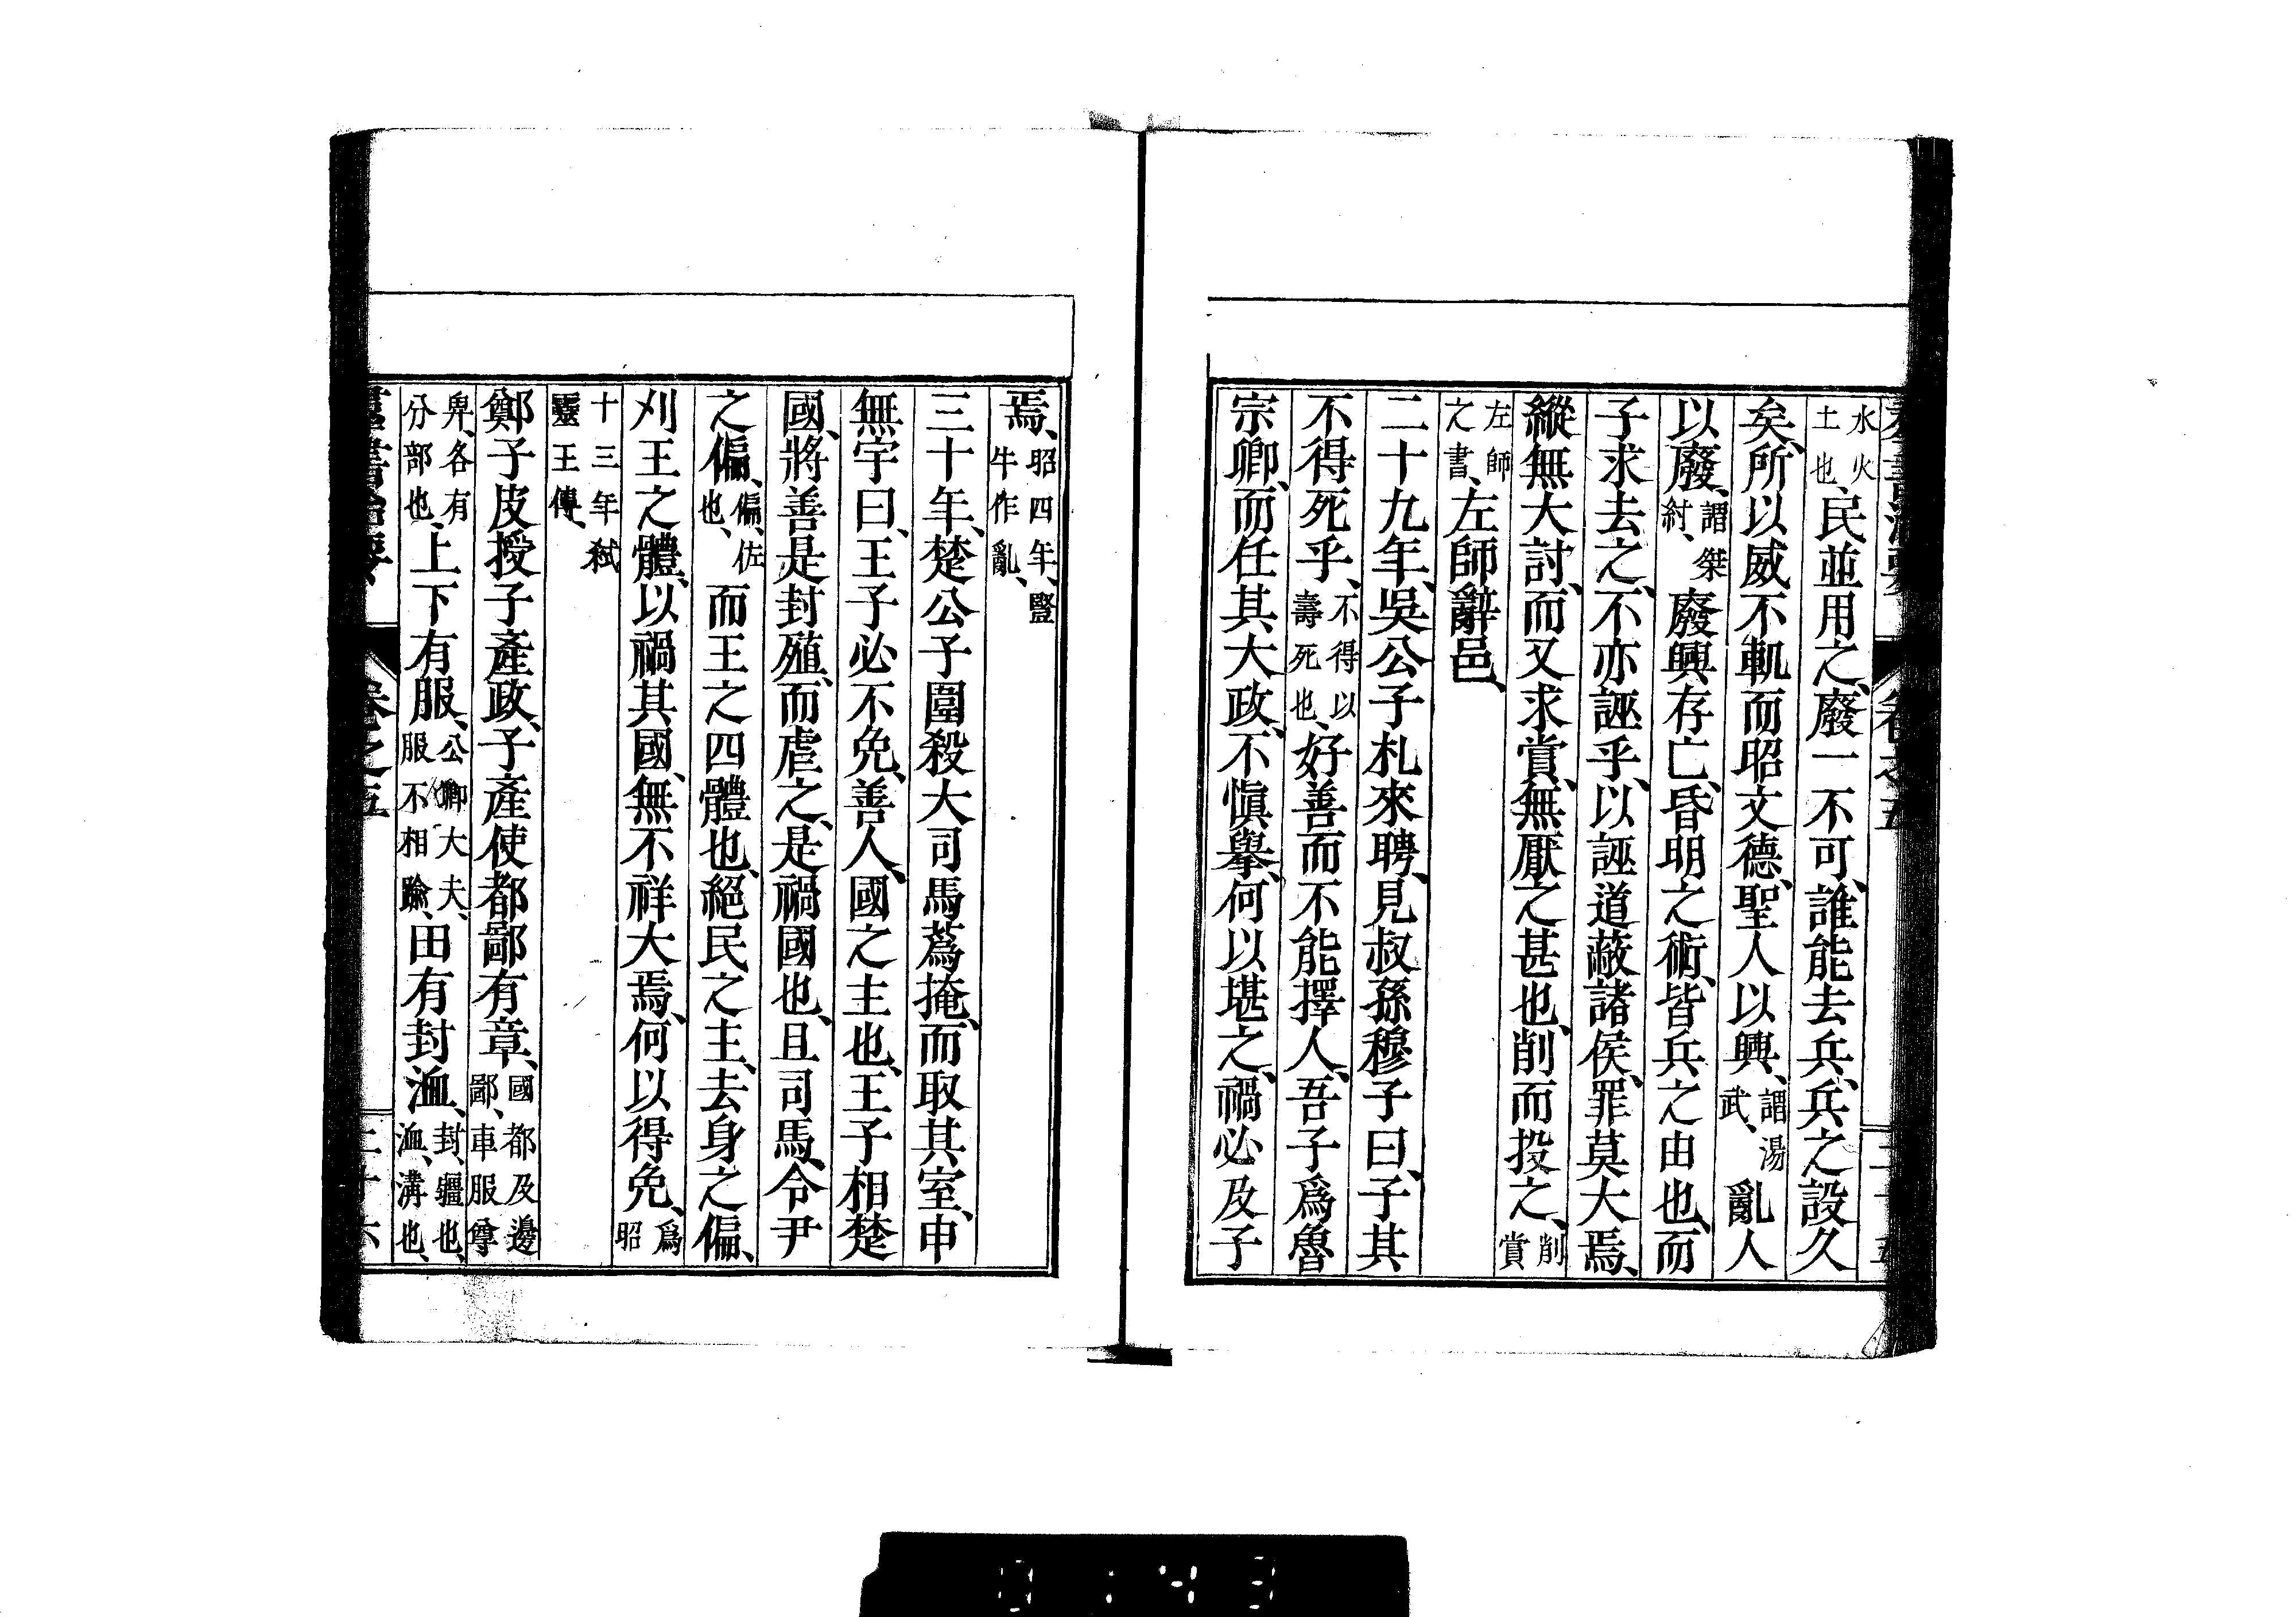 群書治要 卷之五 二十五
水火土也、民並用之、廢一不可、誰能去兵、兵之設久
矣、所以威不軌而昭文德、聖人以興、謂湯武、亂人
以廢、謂桀紂、廢興存亡、昏明之術、皆兵之由也、而
子求去之、不亦誣乎、以誣道蔽諸侯、罪莫大焉、
縱無大討、而又求賞、無厭之甚也、削而投之、削賞
左師之書、左師辭邑、
二十九年、吳公子札來聘、見叔孫穆子曰、子其
不得死乎、不得以壽死也、好善而不能擇人、吾子爲魯
宗卿、而任其大政、不愼擧、何以堪之、禍必及子
焉、昭四年、豎牛作亂、
三十年、楚公子圍殺大司馬蔿掩、而取其室、申
無宇曰、王子必不免、善人、國之主也、王子相楚
國、將善是封殖、而虐之、是禍國也、且司馬、令尹
之偏、偏、佐也、而王之四體也、絕民之主、去身之偏、
刈王之體、以禍其國、無不祥大焉、何以得免、爲昭
十三年弒靈王傳、
鄭子皮授子產政、子產使都鄙有章、國都及邊鄙、車服尊
卑、各有分部也、上下有服、公卿大夫、服不相踰、田有封洫、封、疆也、洫、溝也、
群書治要 卷之五 二十六
0143